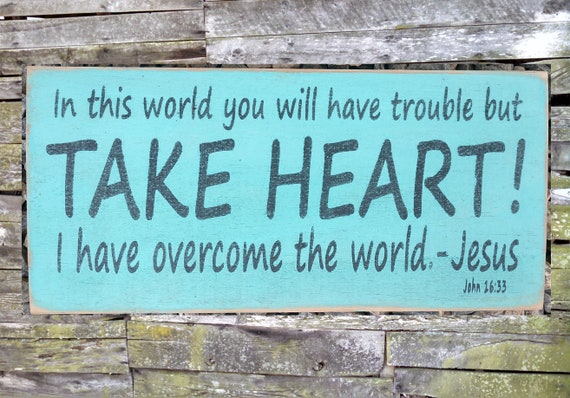 In this world you will have trouble but
TAKE HEART!
I have overcome the world.-Jesus
John 16:33